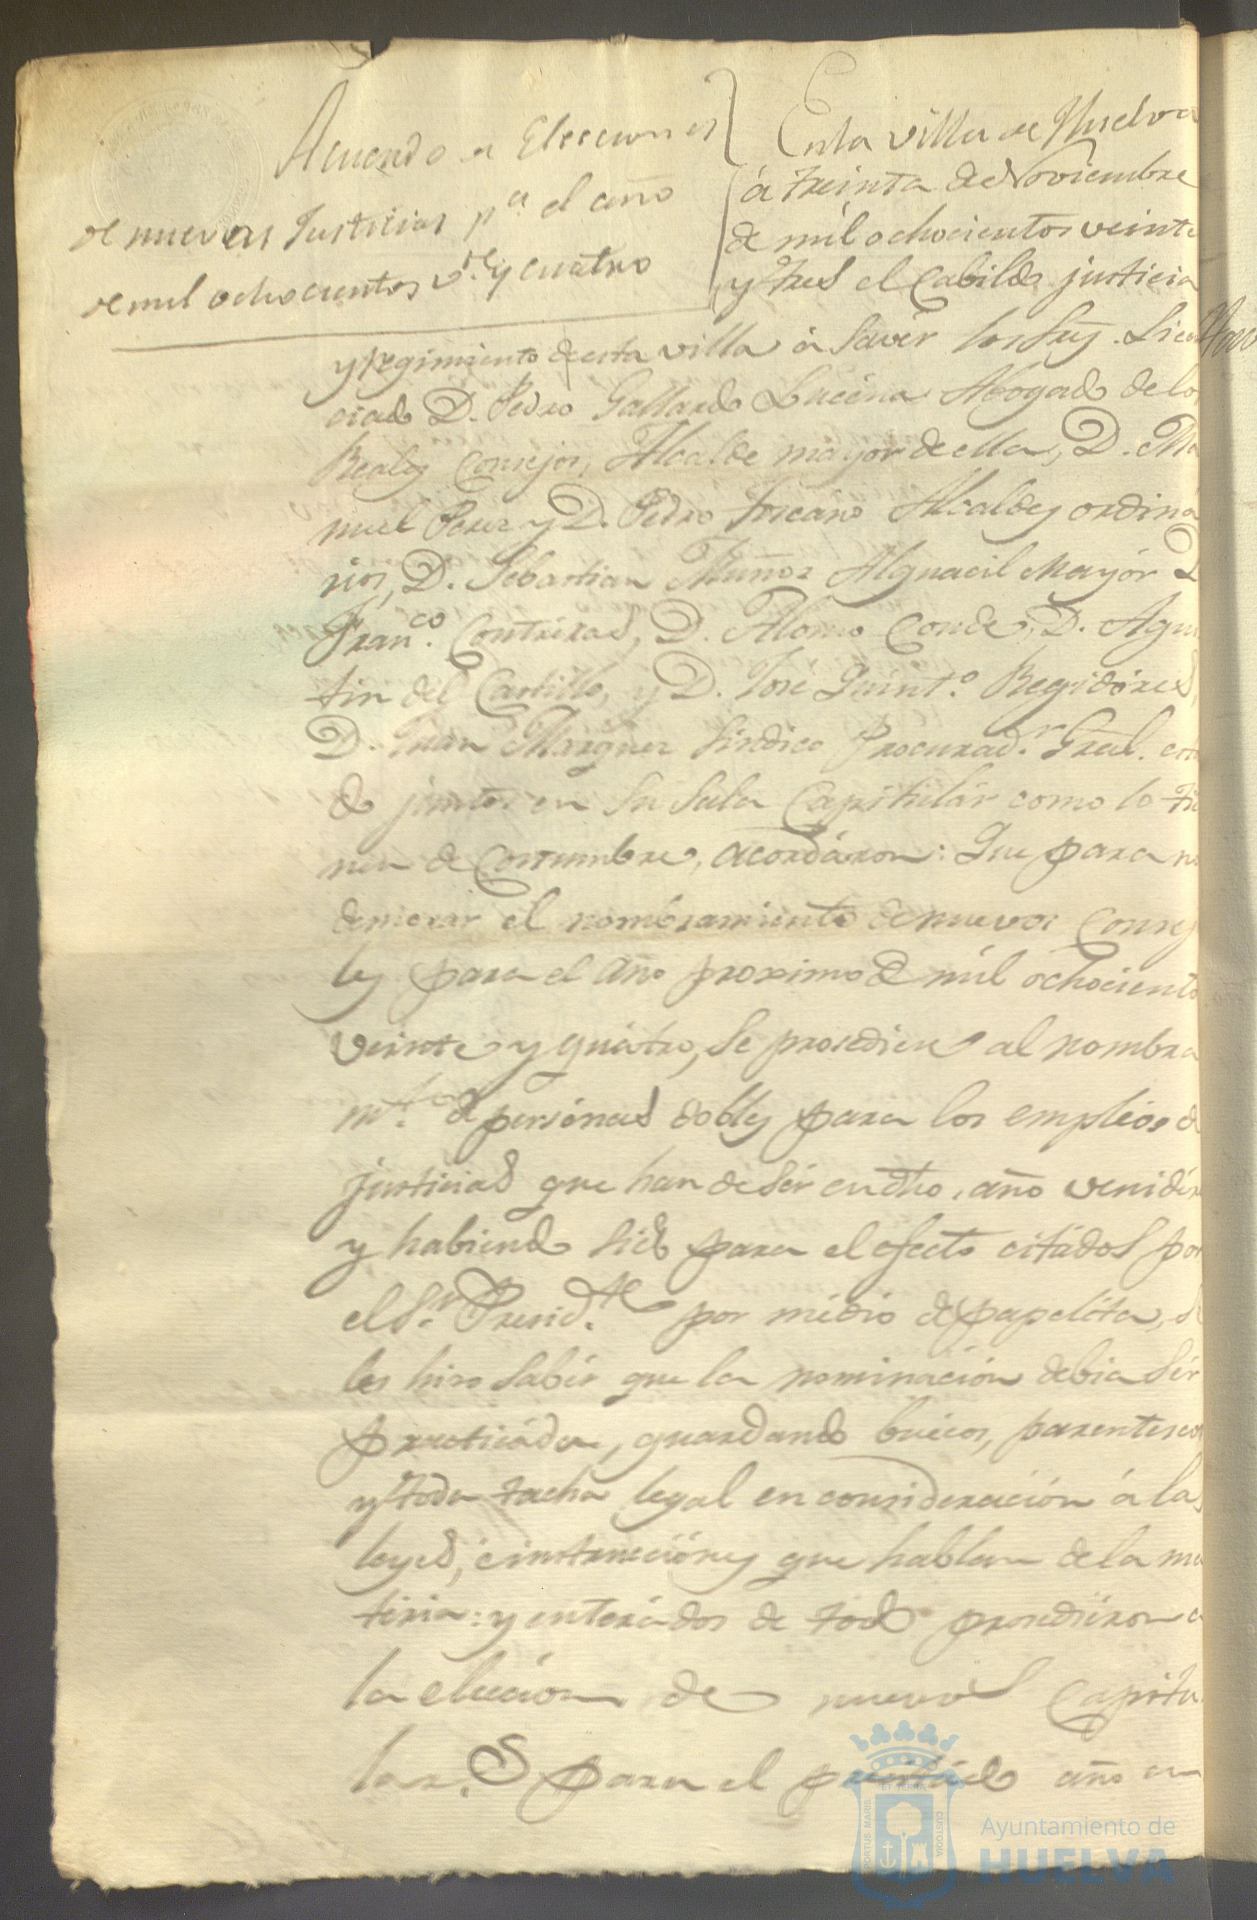 Acuerdo de Elecciones
de nuevas Justicias p.a el año
de mil ochocientos v.te y cuatro
En la villa de Huelva
á treinta de Noviembre
de mil ochocientos veinte
y tres el Cabildo justicia
y regimiento de esta villa á saver los Srs. Licen
ciado D. Pedro Gallardo Lucena Abogado de los
Reales Consejos, Alcalde mayor de ella, D. Ma
nuel Perez y D. Pedro Toscano Alcaldes ordina
rios, D. Sebastian Muñoz Alguacil Mayór D.
Fran.co Contreras, D. Alonso Conde, D. Agus
tin del Castillo, y D. José Quint.o Regidóres,
D. Juan Marquez Sindico Procurad.r Gral. estan
do juntos en su Sala Capitulár como lo tie
nen de Costumbre, acordáron: Que para no
demorar el nombramiento de nuevos Consej
les para el año proximo de mil ochociento
veinte y quátro, se prosediese al nombra
m.to de persónas dobles para los empléos de
justicias que han de sér en dho. año venidér
y habiendo sido para el efecto citádos por
el S.or Presid.te por médio de papeléta, se
les hizo sabér que la nominación debia sér
practicáda, guardando huécos, parentescos
y toda tacha legal en consideración á las
leyes, é instrucciónes que hablan de la ma
teria: y enterádos de todo prosediéron a
la elección de nuevos Capitu
lar.s para el pre año en
PORTUS MARIS
ET TERRE
CUSTODIA
Ayuntamiento de
HUELVA